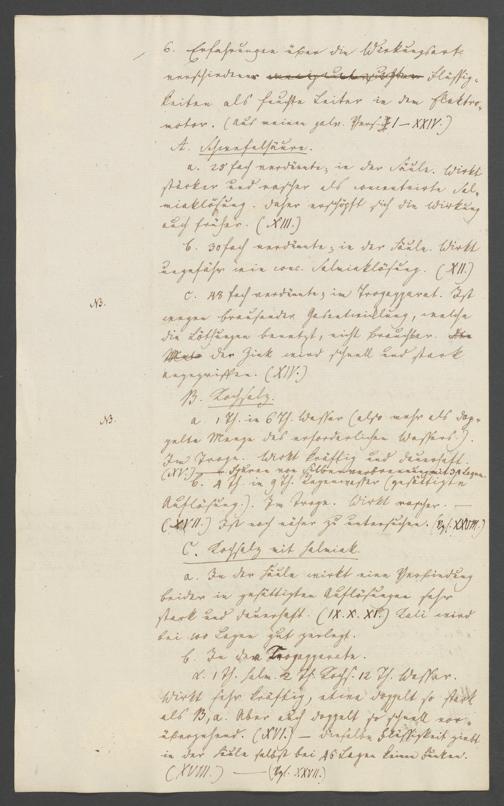 6. Erfahrungen über die Wirkungsart
verschiedener Flüssig-
keiten als feuchte Leiter in dem Elektro-
motor. (Aus meinen galv. Vers. I–XXIV.)
A. Schwefelsäure.
a. 28fach verdünnte; in der Säule. Wirkt
stärker und rascher als concentrirte Sal-
miaklösung. Daher erschöpft sich die Wirkung
auch früher. (XIII.)
b. 30fach verdünnte; in der Säule. Wirkt
ungefähr wie conc. Salmiaklösung. (XII.)
NB.
c. 48fach verdünnte; im Trogapparat. Ist
wegen brausender Gasentwicklung, welche
die Löthungen benetzt, nicht brauchbar.
der Zink wird schnell und stark
angegriffen. (XIV.)
B. Kochsalz.
NB.
a. 1 Th. in 6 Th. Wasser (also mehr als dop-
pelte Menge des erforderlichen Wassers.).
Im Troge. Wirkt kräftig und dauerhaft.
(XV.) Spuren von Silberverbrennung mit Lagen.
b. 4 Th. in 9 Th. Regenwasser (gesättigte
Auflösung.). Im Troge. Wirkt rascher. —
(XVII.) Ist noch näher zu untersuchen. (Vgl. XXVIII.)
C. Kochsalz mit Salmiak.
a. In der Säule wirkt eine Verbindung
beider in gesättigten Auflösungen sehr
stark und dauerhaft. (IX. X. XI.) Kali wird
bei 100 Lagen gut zerlegt.
b. In dem Trogapparate.
α. 1 Th. Salm. 2 Th. Kochs. 12 Th. Wasser.
Wirkt sehr kräftig, etwa doppelt so stark
als B, a. Aber auch doppelt so schnell vor-
übergehend. (XVI.) — Dieselbe Flüssigkeit giebt
in der Säule selbst bei 46 Lagen keine Funken.
(XVIII.) — (Vgl. XXVII.)